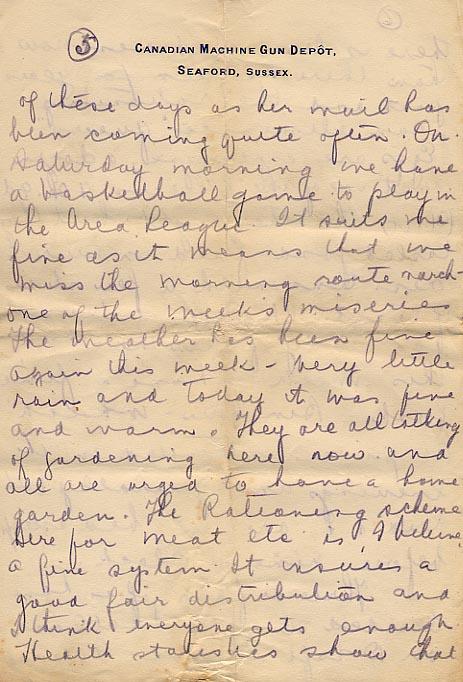 5
CANADIAN MACHINE GUN DEPÔT,
SEAFORD, SUSSEX.
of these days as her mail has
been coming quite often. On
Saturday morning we have
a basketball game to play in
the Area League. It suits me
fine as it means that we
miss the morning route march -
one of the week's miseries
The weather has been fine
again this week - very little
rain and today it was fine
and warm. They are all talking
of gardening here now and
all are urged to have a home
garden. The Rationing scheme
here for meat etc is I believe
a fine system. It insures a
good fair distribution and
I think everyone gets enough
Health statistics show that